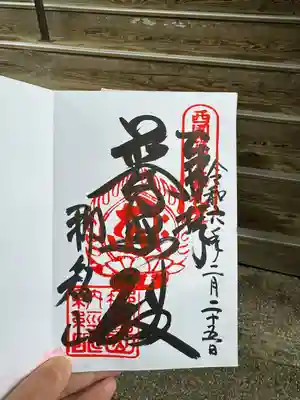 令和六年二月二十五日
奉拝
西国
普照殿
那智山